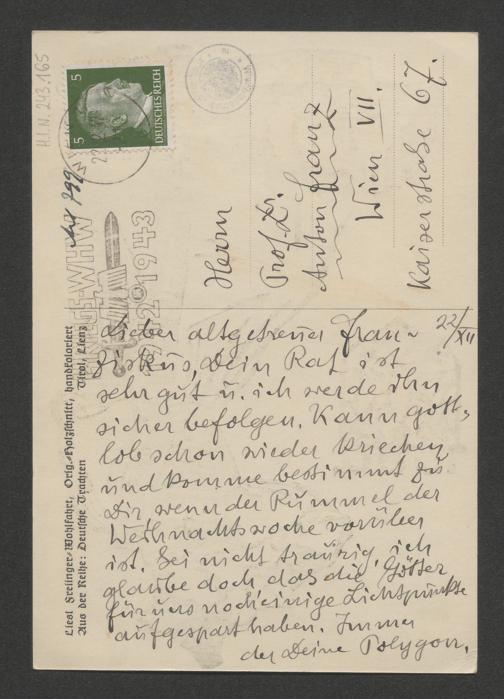 H.I.N. 243.165
5 5
DEUTSCHES REICH
WIEN
WHW
1943
Herrn
Prof. Dr.
Anton Franz
Wien VII.
Kaiserstraße 67.
22/XII
Lieber altgetreuer Fran-
ziskus, Dein Rat ist
sehr gut u. ich werde ihn
sicher befolgen. Kann gott-
lob schon wieder kriechen
und komme bestimmt zu
Dir wenn der Rummel der
Weihnachtswoche vorüber
ist. Sei nicht traurig, ich
glaube doch das die Götter
für uns noch einige Lichtpunkte
aufgespart haben. Immer
der Deine Polygon.
Liesl Frelinger-Wohlfahrt, Orig.-Holzschnitt, handkoloriert
Aus der Reihe: Deutsche Trachten Tirol, Lienz